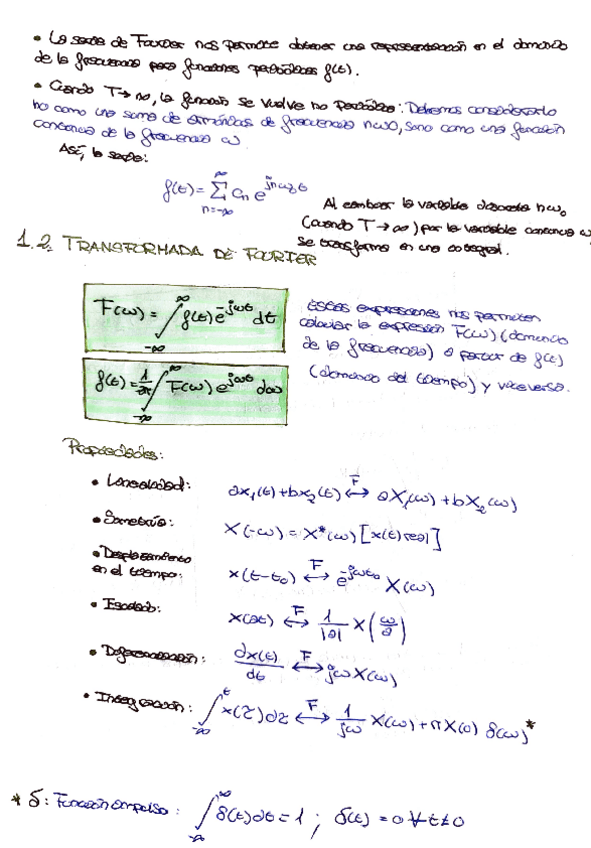 • La serie de Fourier nos permite obtener una representación en el dominio
de la frecuencia para funciones periódicas f(t).
• Cuando T→∞, la función se vuelve no periódica: Debemos considerarlo
no como una suma de armónicos de frecuencia nω₀, sino como una función
continua de la frecuencia ω.
Así, la serie:
f(t) = ∑_{n=-∞}^{∞} Cₙ e^{jnω₀t}
Al cambiar la variable discreta nω₀
(cuando T→∞) por la variable continua ω,
se transforma en una integral.
1.2. TRANSFORMADA DE FOURIER
F(ω) = ∫_{-∞}^{∞} f(t) e^{-jωt} dt
f(t) = 1/2π ∫_{-∞}^{∞} F(ω) e^{jωt} dω
Estas expresiones nos permiten
calcular la expresión F(ω) (dominio
de la frecuencia) a partir de f(t)
(dominio del tiempo) y viceversa.
Propiedades:
• Linealidad: ax₁(t) + bx₂(t) ↔F aX₁(ω) + bX₂(ω)
• Simetría: X(-ω) = X*(ω) [x(t) real]
• Desplazamiento
en el tiempo: x(t-t₀) ↔F e^{-jωt₀} X(ω)
• Escalado: x(at) ↔F 1/|a| X(ω/a)
• Diferenciación: dx(t)/dt ↔F jω X(ω)
• Integración: ∫_{-∞}^{t} x(τ)dτ ↔F 1/jω X(ω) + πX(0) δ(ω)*
* δ: Función impulso: ∫_{-∞}^{∞} δ(t)dt = 1 ; δ(t) = 0 ∀ t≠0